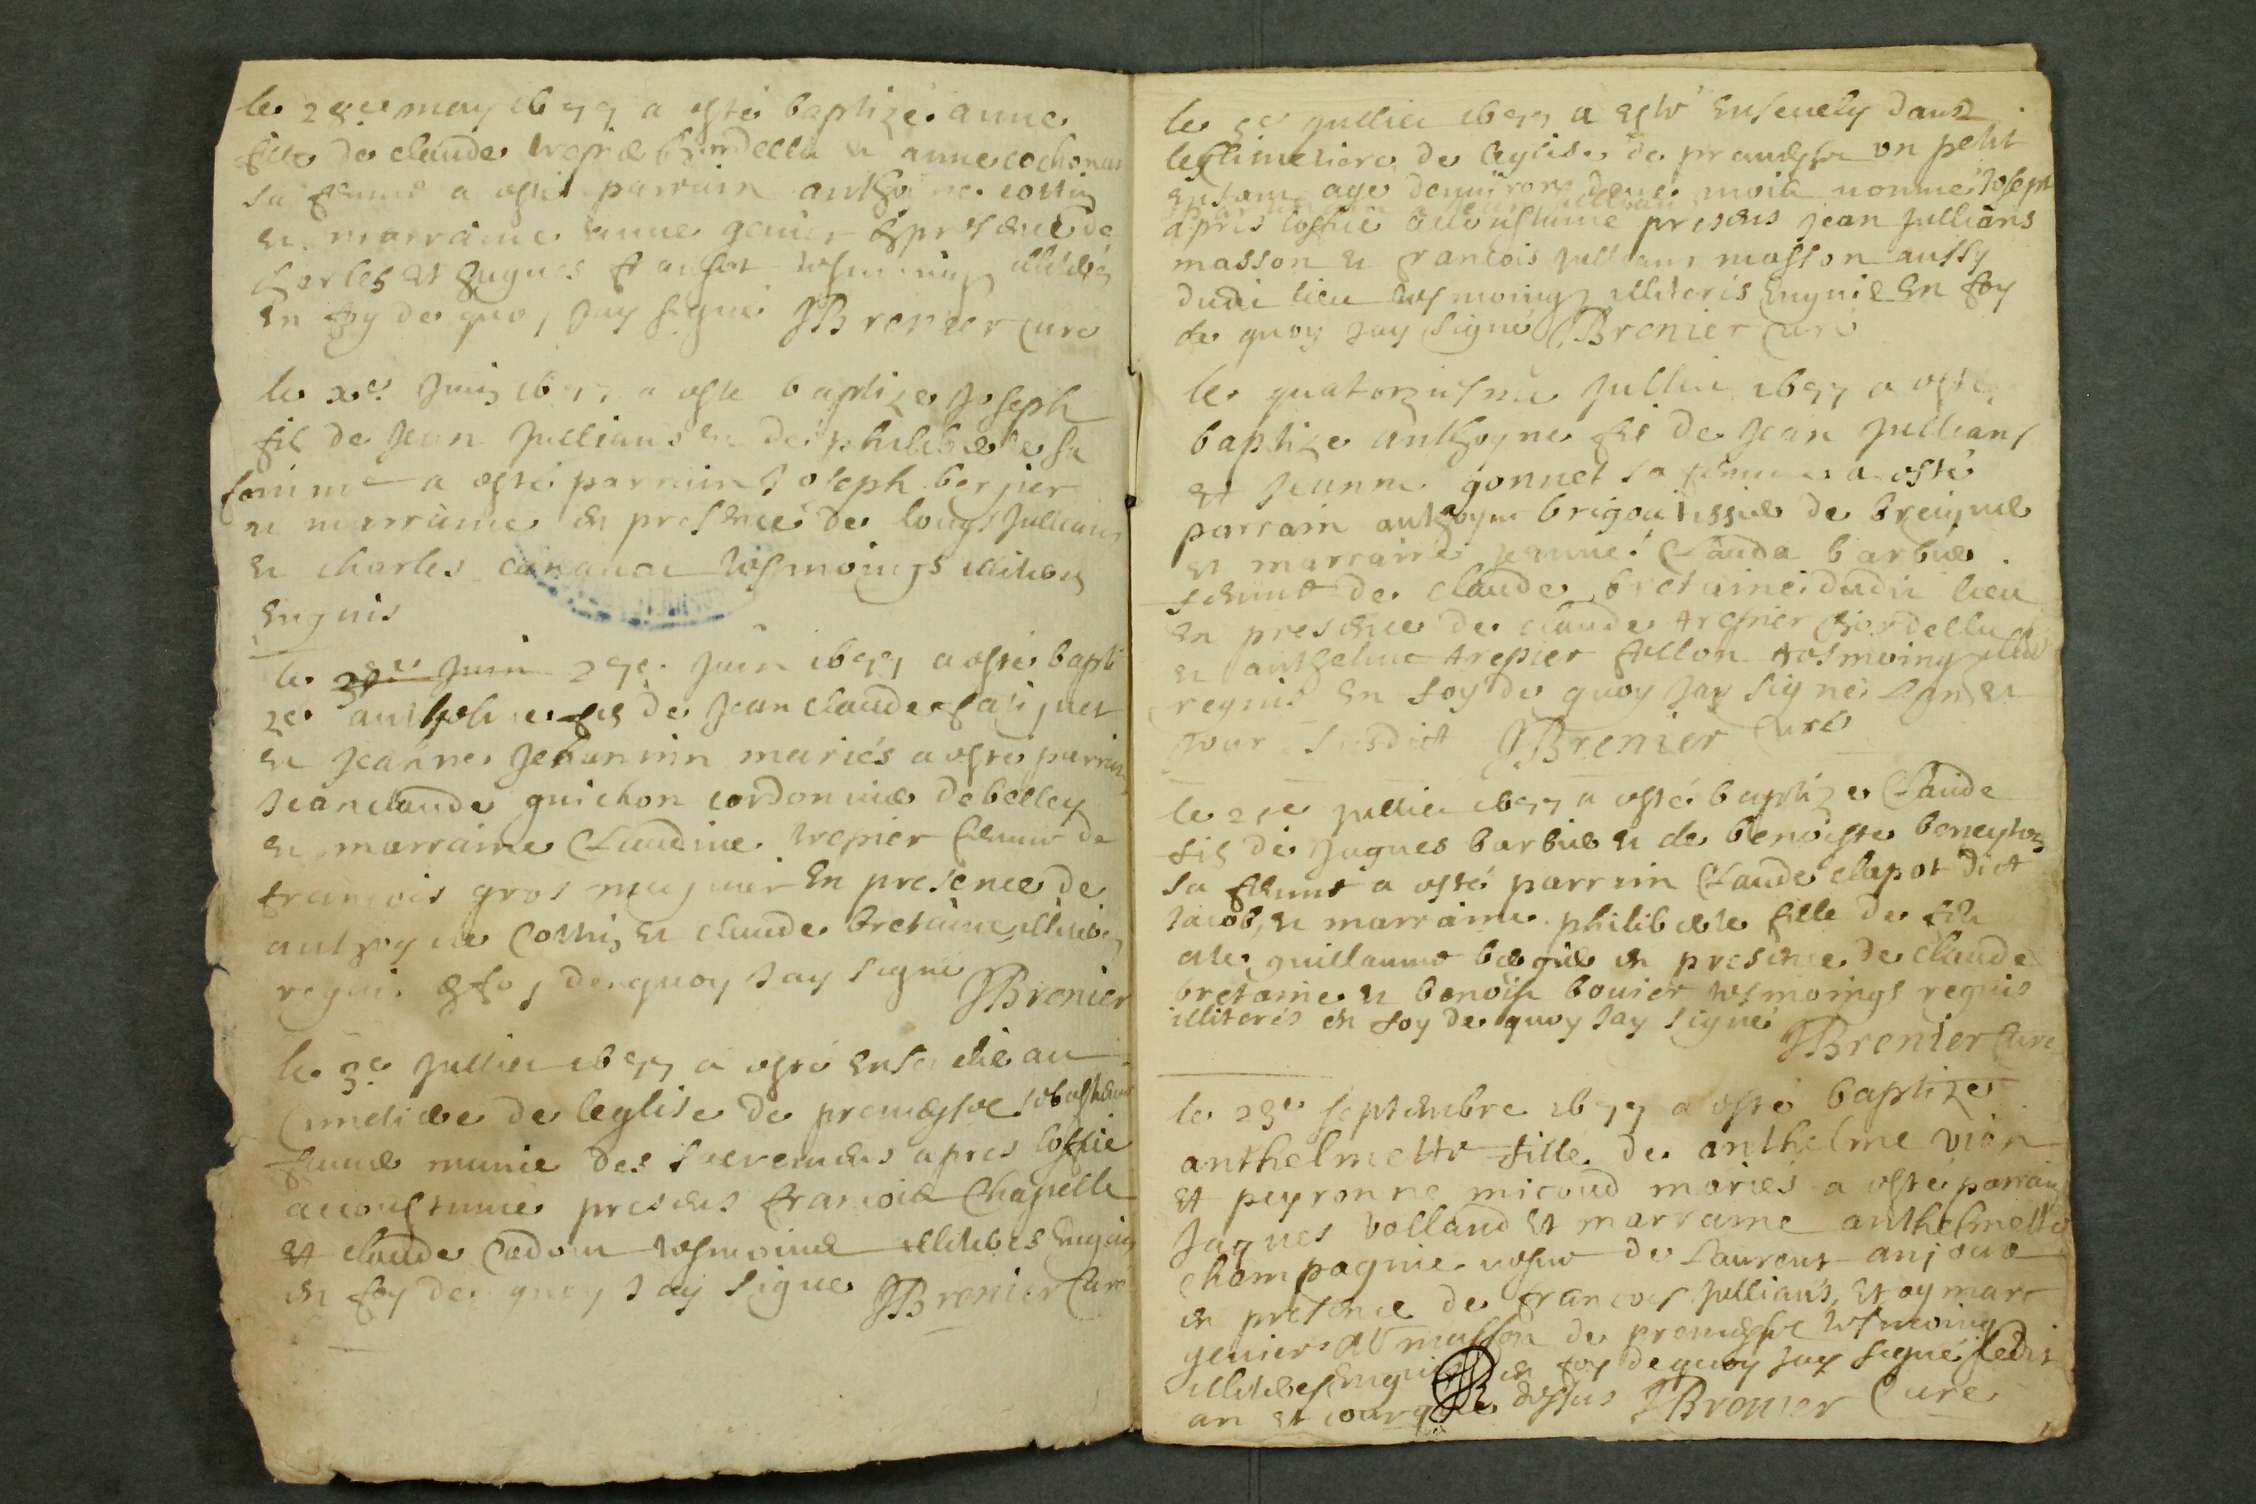 le 28e may 1677 a esté baptizé anne
fille de claude trepier bordellu et anne cochonat
sa femme a esté parrain anthoyne cottin
et marraine anne genier en presence de
charles et hugues tesmoings illiterés
en foy de quoy jay signé JBrenier curé
le xe juin 1677 a esté baptize Joseph
fils de Jean Jullians et de philiberte sa
femme a esté parrain Joseph berjier
et marraine en presence de louys Jullians
et charles tesmoings illiterés
enquis
le juin 25e juin 1677 a esté bapti
zé anthelme fils de Jean claude falquet
et Jeanne Jehannin mariés a esté parrain
Jean claude guichon cordonnier de belley
et marraine Claudine trepier femme de
francois gros meynier en presence de
anthoyne Cottin et claude bretaine illiterés
requis en foy de quoy jay signé JBrenier
le 3e Jullier 1677 a esté ensevelie au
cimetiere de leglise de premeysel sebastienne
munie des sacremens apres loffice
accoustumé presens francois Chapelle
et claude Cadou tesmoins illiterés enquis
en foy de quoy Jay signé JBrenier Curé
le 5e Jullier 1677 a esté ensevely dans
le cimetiere de leglise de premeysel un petit
enfant agé denviron deux mois nommé Joseph
apres loffice accoustumé presens Jean Jullians
masson et francois Jullians masson aussy
dudit lieu tesmoings illiterés enquis en foy
de quoy jay signé JBrenier curé
le quatorziesme Jullier 1677 a esté
baptize anthoyne fils de Jean Jullians
et Jeanne gonnet sa femme a esté
parrain anthoyne brigou tissier de breigne
et marraine Claude barbier
femme de claude bretaine dudit lieu
en presence de claude trepier bordellu
et anthelme trepier fillon tesmoings illite
requis en foy de quoy Jay signé lan et
jour susdict JBrenier Curé
le 25e Jullier 1677 a esté baptize Claude
fils de Jaques barbier et de benoiste beneyton
sa femme a esté parrain Claude clapot dict
Jacob, et marraine philiberte fille de feu
me guillaume bergier en presence de claude
bretaine et benoist bouier tesmoings requis
illiterés en foy de quoy Jay signé
JBrenier Curé
le 28e septembre 1677 a esté baptize
anthelmette fille de anthelme vion
et peyronne micoud mariés a esté parrain
Jaques volland et marraine anthelmette
champagnie vefve de Laurent anjoue
en presence de francois Jullians, et aymare
genier masson de premeysel tesmoings
illiterés enquis en foy de quoy jay signé ledit
an et jour que dessus JBrenier Curé